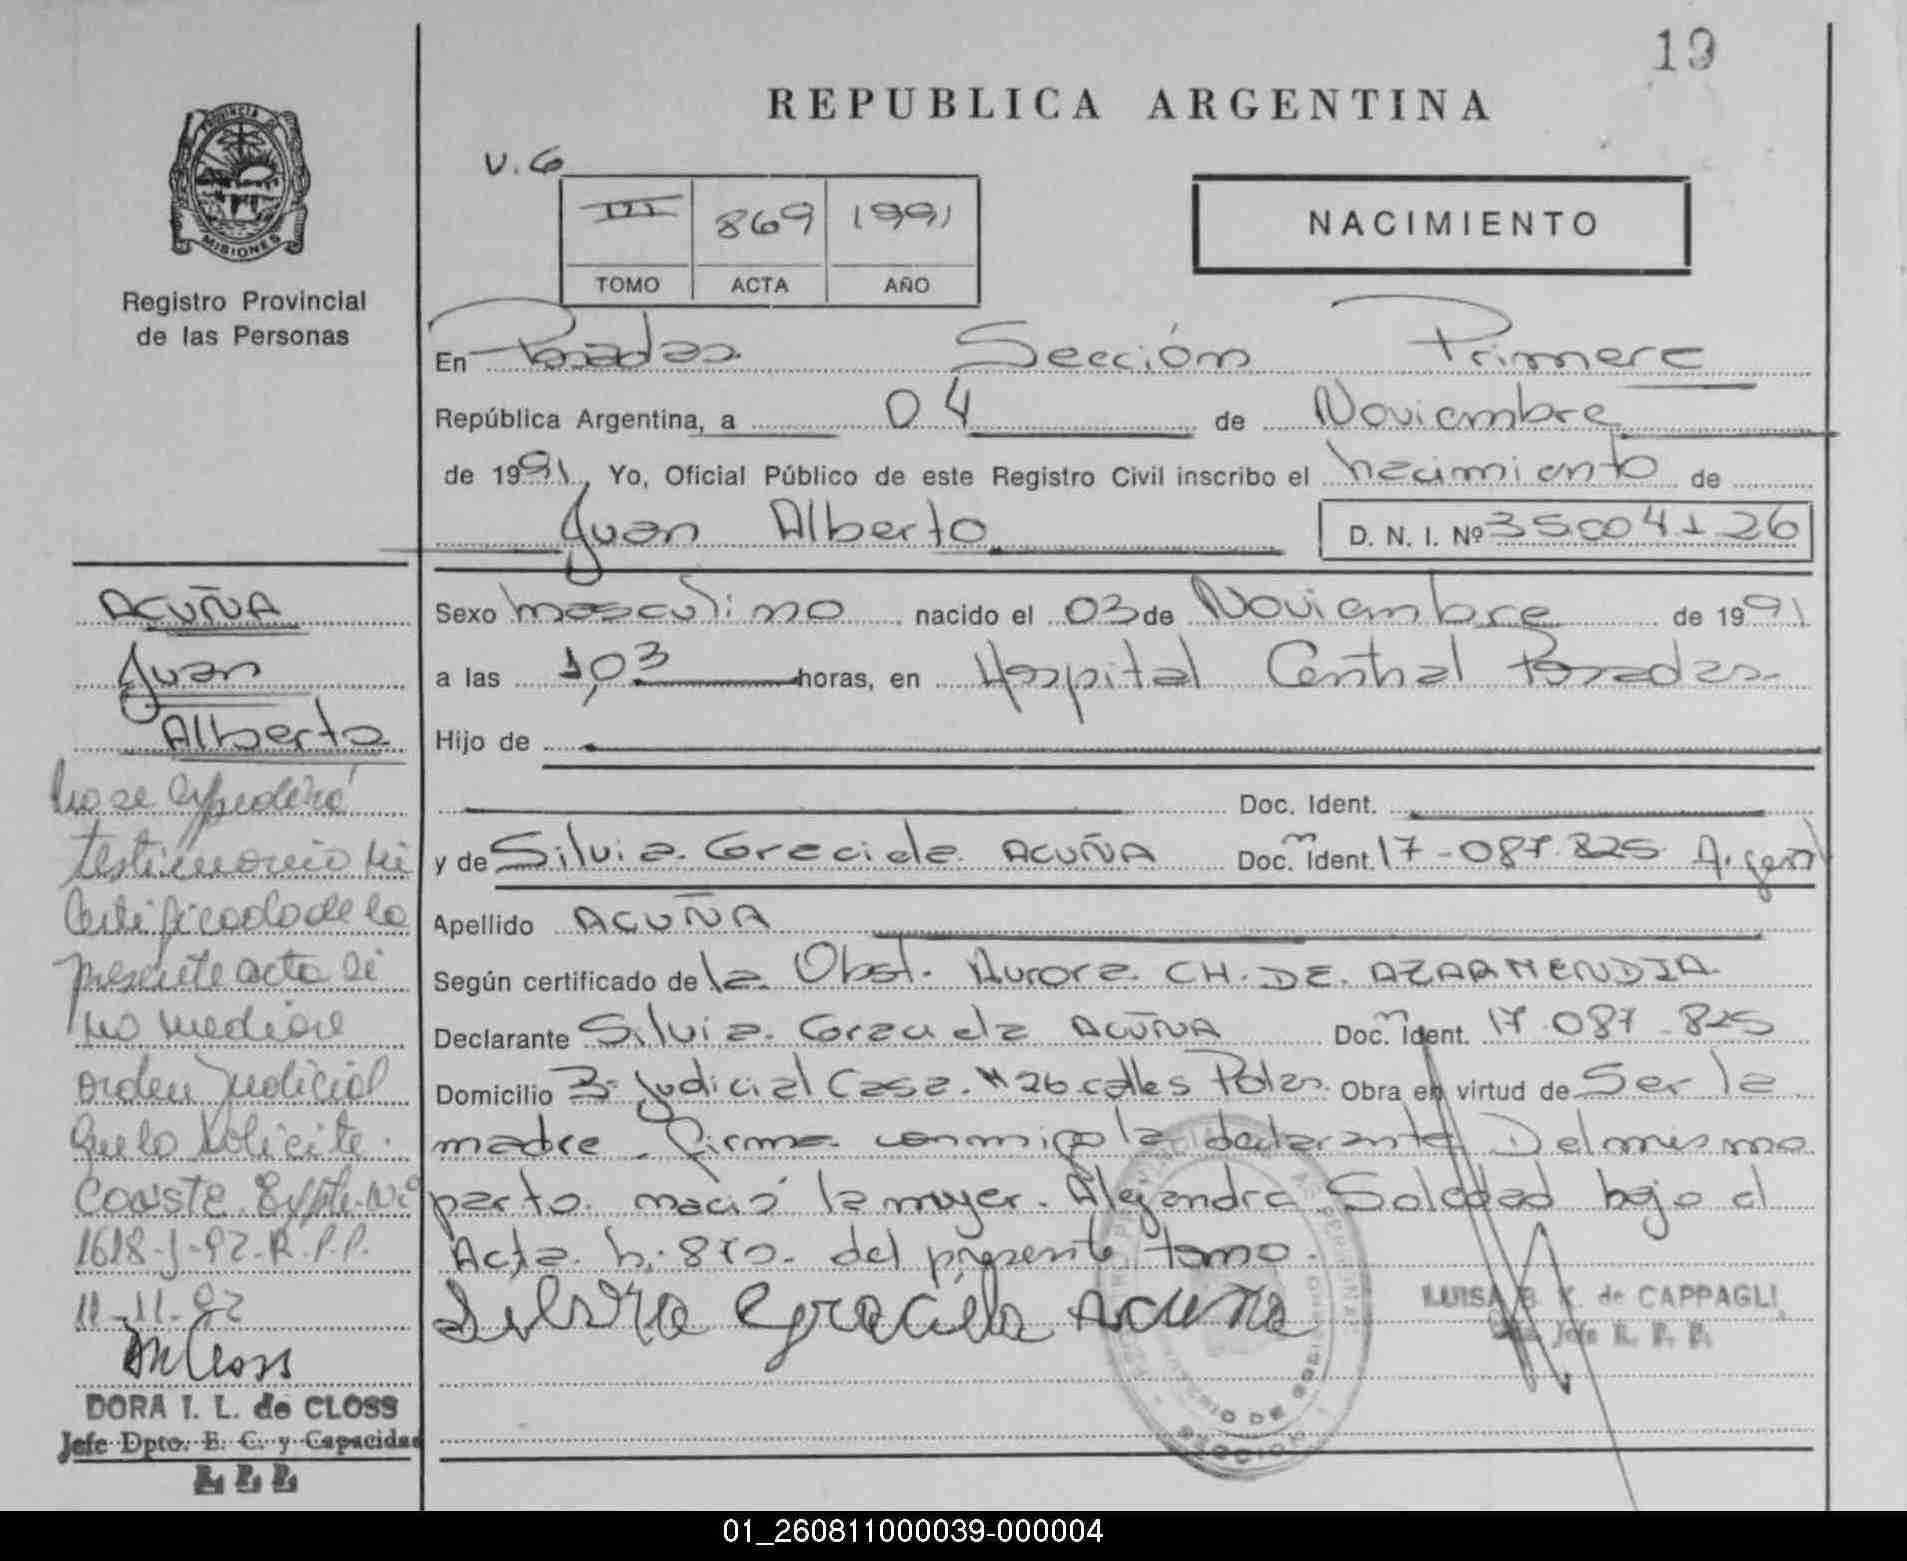 19
REPUBLICA ARGENTINA
PROVINCIA DE
MISIONES
Registro Provincial
de las Personas
V. G
III 869 1991
TOMO ACTA AÑO
NACIMIENTO
En Posadas Sección Primera
República Argentina, a 04 de Noviembre
de 1991, Yo, Oficial Público de este Registro Civil inscribo el nacimiento de
Juan Alberto D. N. I. Nº 35.004.126
ACUÑA
Juan
Alberto
Sexo masculino nacido el 03 de Noviembre de 1991
a las 1,03 horas, en Hospital Central Posadas
Hijo de
Doc. Ident.
y de Silvia Graciela ACUÑA Doc. Ident. 17.087.825 Argent
Apellido ACUÑA
Según certificado de la Obst. Aurora CH. DE. AZARMENDIA
Declarante Silvia Graciela ACUÑA Doc. Ident. 17.087.825
Domicilio Bº Judicial Casa Nº 26 calles Polas. Obra en virtud de Ser la
madre. firma conmigo la declarante Del mismo
parto nació la mujer. Alejandra Soledad bajo el
Acta n: 870. del presente tomo.
Silvia Graciela Acuña
LUISA B. K. de CAPPAGLI
Jefe R. P. P.
No se expedirá
testimonio ni
Certificado de la
presente acta si
no mediare
orden Judicial
que lo solicite.
Conste. Expte. Nº
1618-J-92-R.P.P.
11-11-92
DM Closs
DORA I. L. de CLOSS
Jefe Dpto. E. C. y Capacidad
R. P. P.
01_260811000039-000004